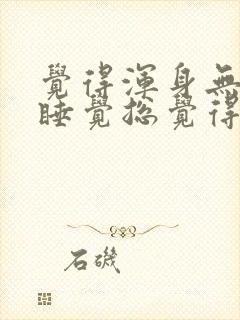 覺得渾身無
睡覺總覺得
石磯